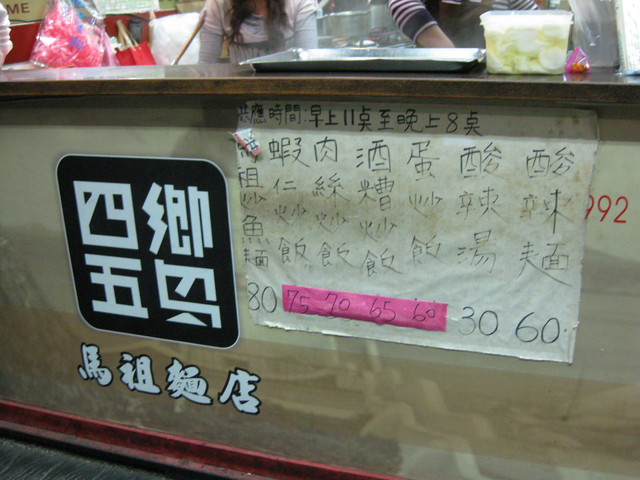 OME
供應時間:早上11奌至晚上8奌
馬祖炒魚麵
80
蝦仁炒飯
75
肉絲炒飯
70
酒糟炒飯
65
蛋炒飯
60
酸辣湯
30
酸辣麵
60
992
四鄉
五島
馬祖麵店